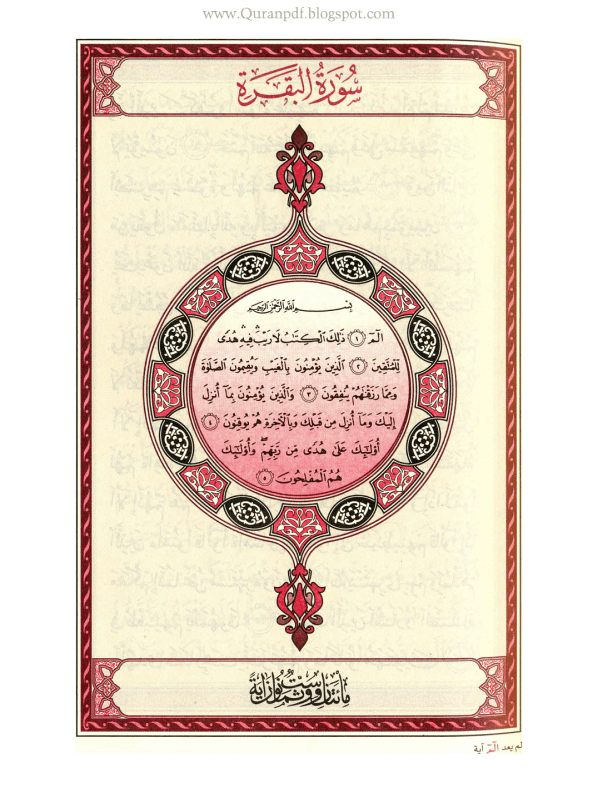 www.Quranpdf.blogspot.com
سُورَةُ الْبَقَرَةِ
بِسْمِ اللَّهِ الرَّحْمَٰنِ الرَّحِيمِ
الٓمٓ ١ ذَٰلِكَ الْكِتَٰبُ لَا رَيْبَ ۛ فِيهِ ۛ هُدًى
لِّلْمُتَّقِينَ ٢ الَّذِينَ يُؤْمِنُونَ بِالْغَيْبِ وَيُقِيمُونَ الصَّلَوٰةَ
وَمِمَّا رَزَقْنَٰهُمْ يُنفِقُونَ ٣ وَالَّذِينَ يُؤْمِنُونَ بِمَآ أُنزِلَ
إِلَيْكَ وَمَآ أُنزِلَ مِن قَبْلِكَ وَبِالْءَاخِرَةِ هُمْ يُوقِنُونَ ٤
أُو۟لَٰٓئِكَ عَلَىٰ هُدًى مِّن رَّبِّهِمْ ۖ وَأُو۟لَٰٓئِكَ
هُمُ الْمُفْلِحُونَ ٥
مائتان وست وثمانون آية
لم يعد الٓمٓ آية